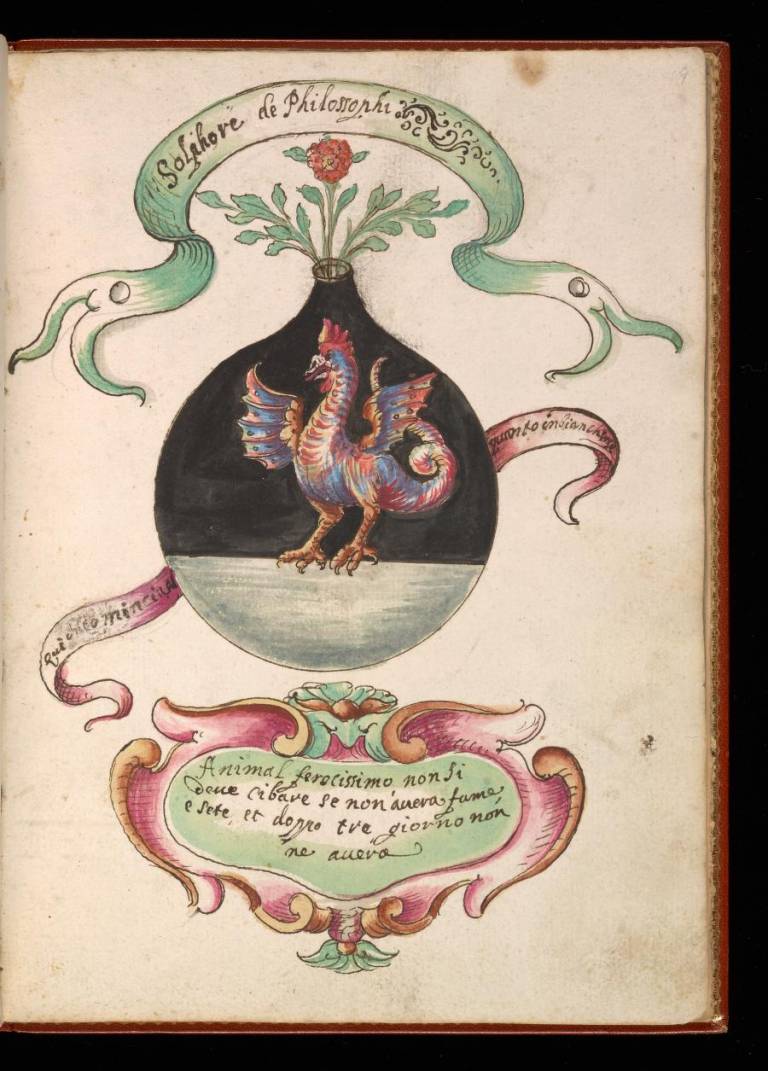 Solphore de Philosophi
quanto in bianchira
qui in cominciasi
Animal ferocissimo non si
deue cibare se non auera fame
e sete, et doppo tre giorno non
ne auera